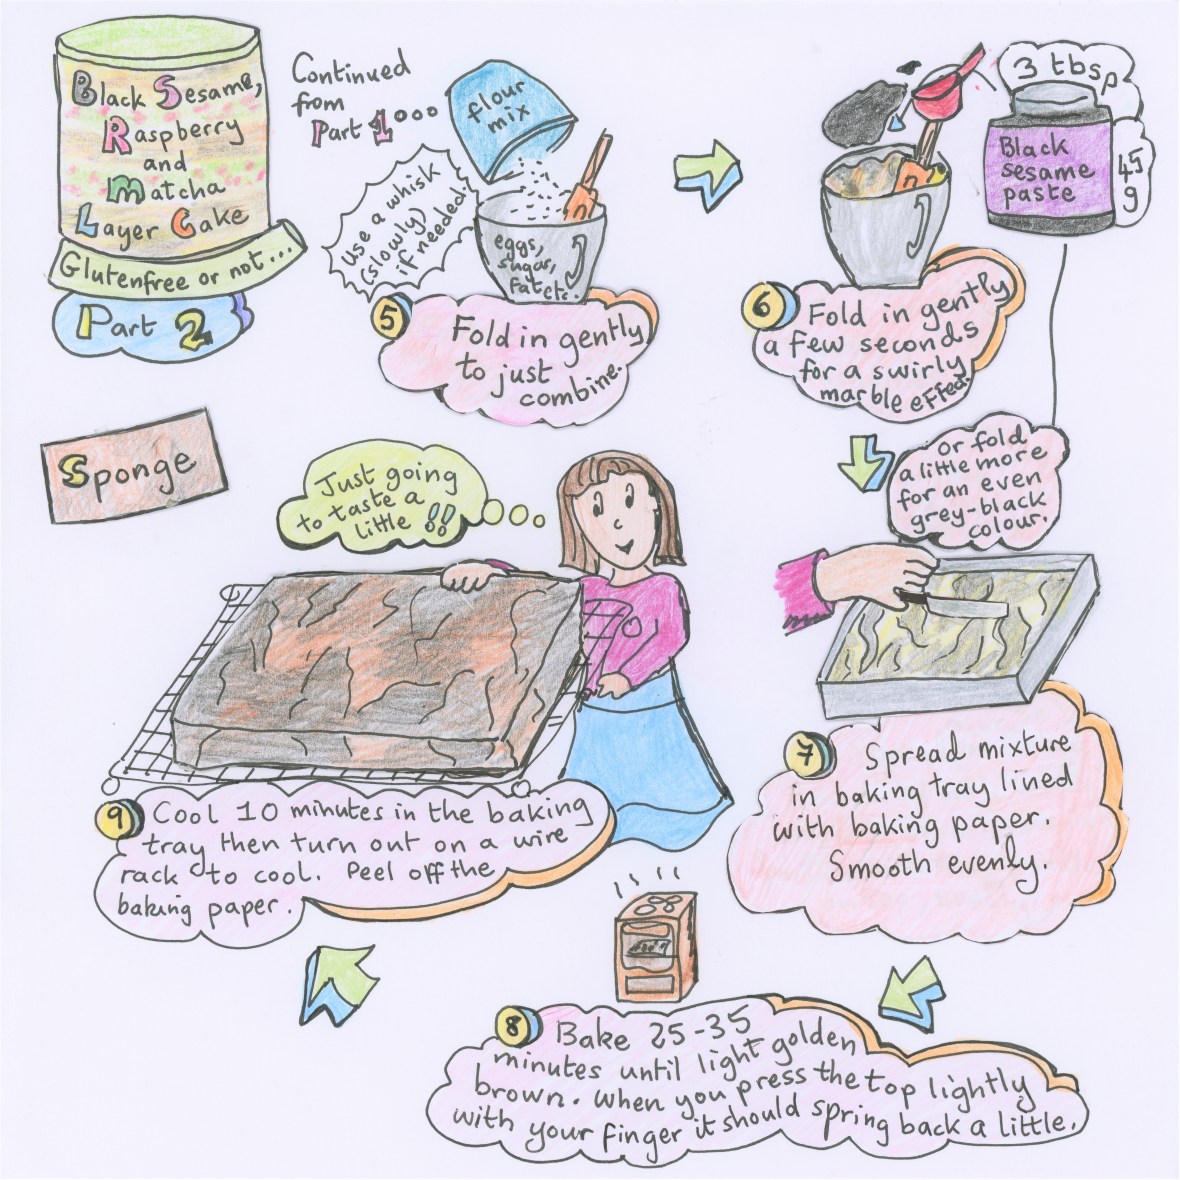 Black Sesame,
Raspberry
and
Matcha
Layer Cake
Glutenfree or not...
Part 2
Continued
from
Part 1...
use a whisk
(slowly)
if needed!
flour
mix
eggs,
sugar,
fat etc.
5
Fold in gently
to just
combine.
3 tbsp
45
g
Black
sesame
paste
6
Fold in gently
a few seconds
for a swirly
marble effect.
or fold
a little more
for an even
grey-black
colour.
Sponge
7
Spread mixture
in baking tray lined
with baking paper.
Smooth evenly.
8
Bake 25-35
minutes until light golden
brown. When you press the top lightly
with your finger it should spring back a little.
Just going
to taste a
little !!
9
Cool 10 minutes in the baking
tray then turn out on a wire
rack to cool. Peel off the
baking paper.